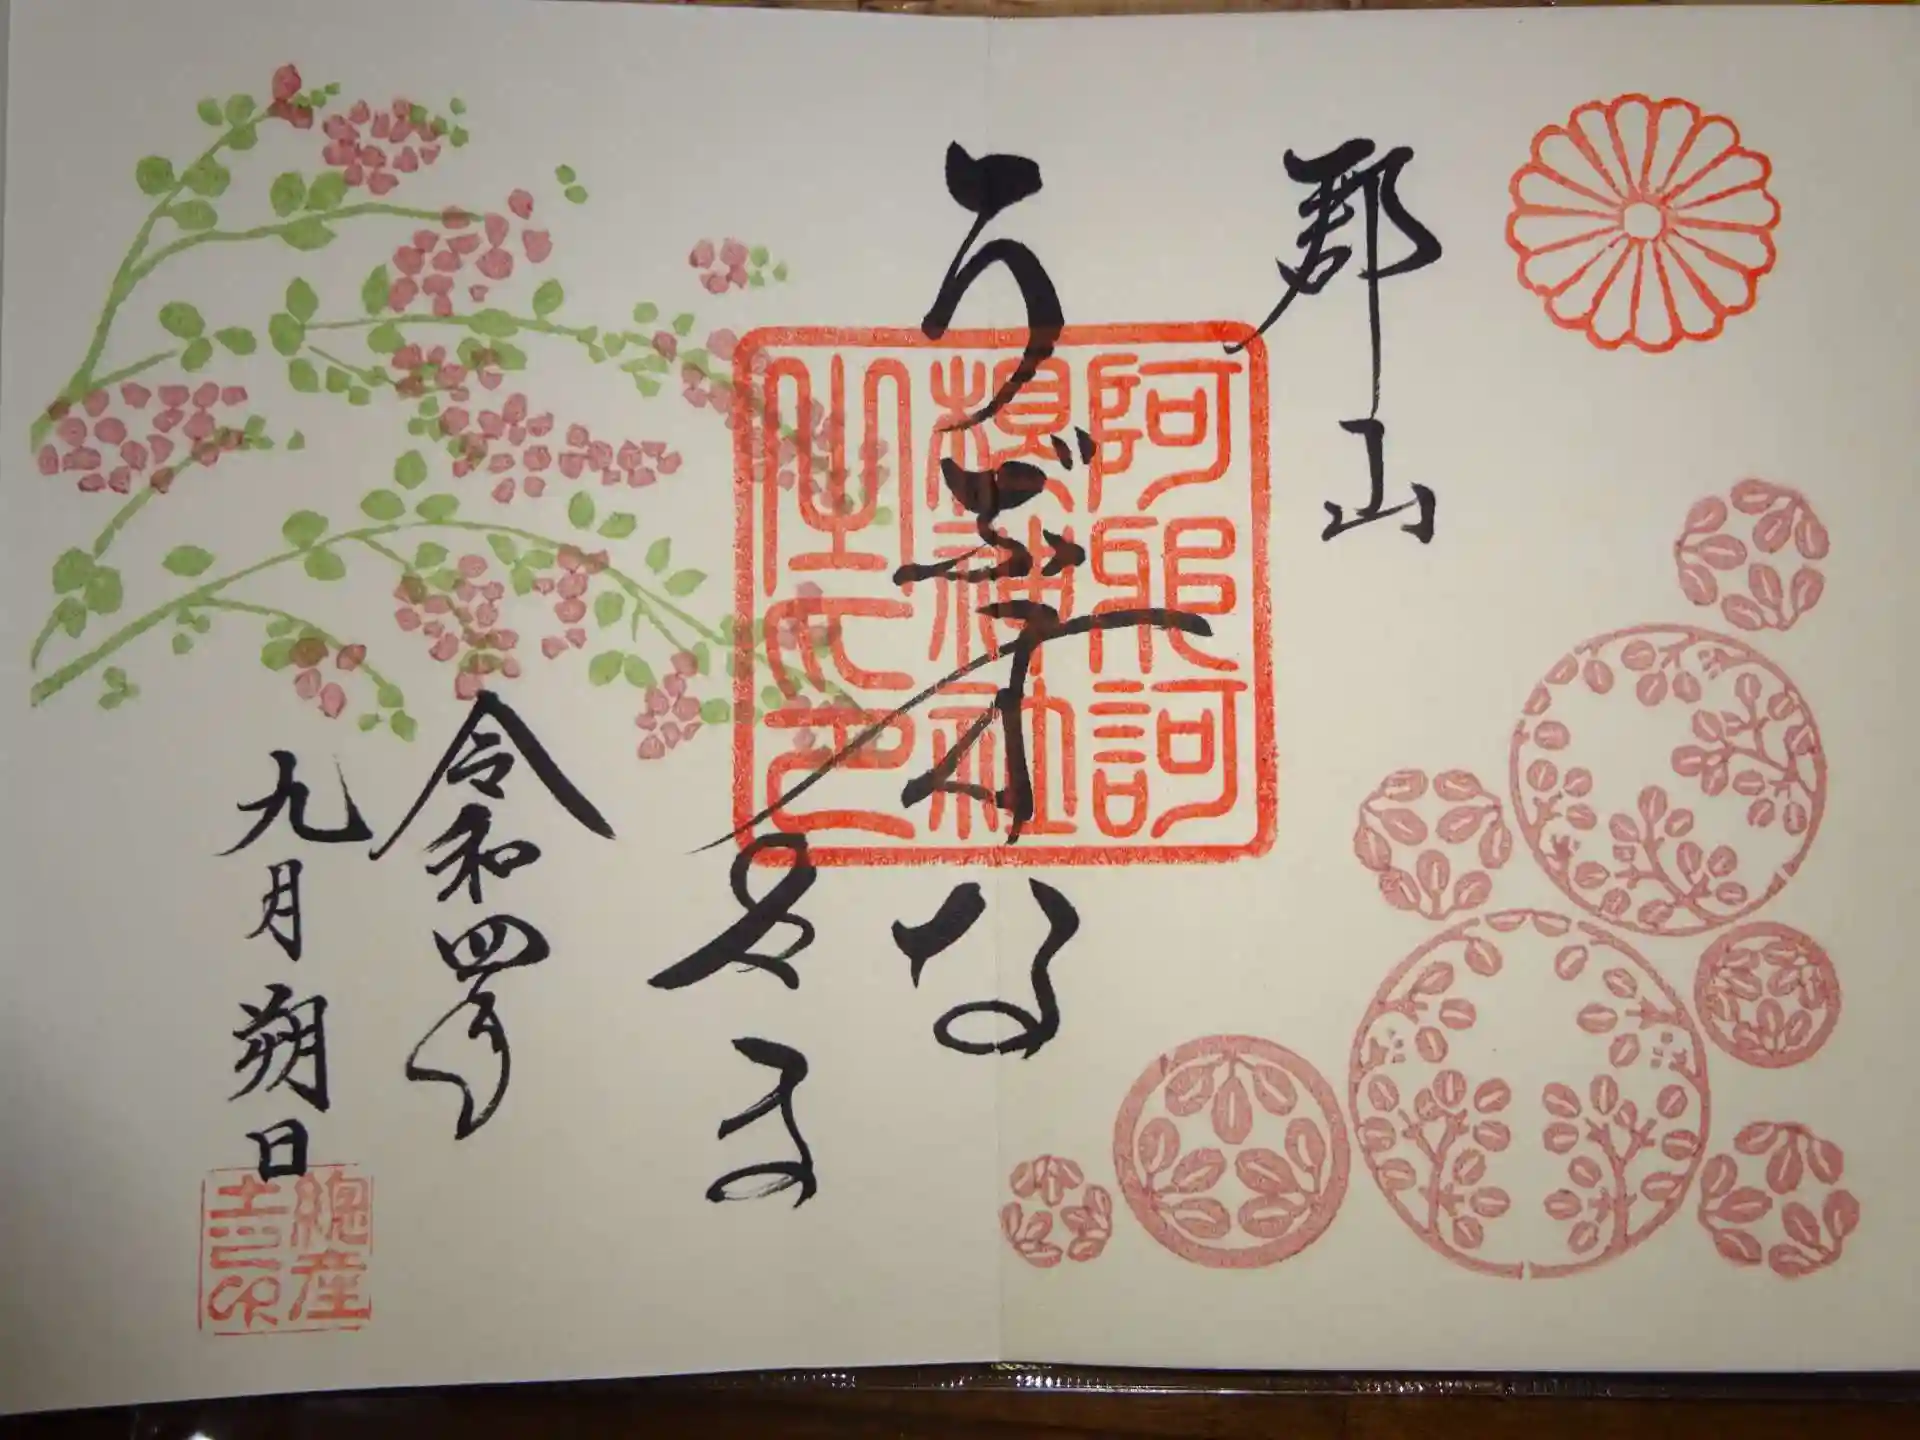 郡山
うぶすな
さま
阿邪訶
根神社
之印
令和四年
九月朔日
總産
土之印